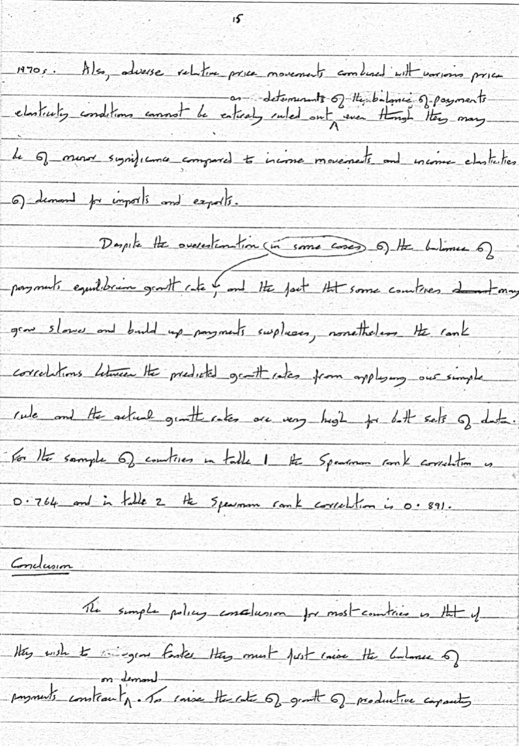 15
1970s. Also, adverse relative price movements combined with various price
as determinants of the balance of payments
elasticity conditions cannot be entirely ruled out ‸ even though they may
be of minor significance compared to income movements and income elasticities
of demand for imports and exports.
Despite the overestimation (in some cases) of the balance of
payments equilibrium growth rate, and the fact that some countries may
grow slower and build up payments surpluses, nonetheless the rank
correlations between the predicted growth rates from applying our simple
rule and the actual growth rates are very high for both sets of data.
For the sample of countries in table 1 the Spearman rank correlation is
0.764 and in table 2 the Spearman rank correlation is 0.891.
Conclusion
The simple policy conclusion for most countries is that if
they wish to grow faster they must first raise the balance of
on demand
payments constraint ‸. To raise the rate of growth of productive capacity